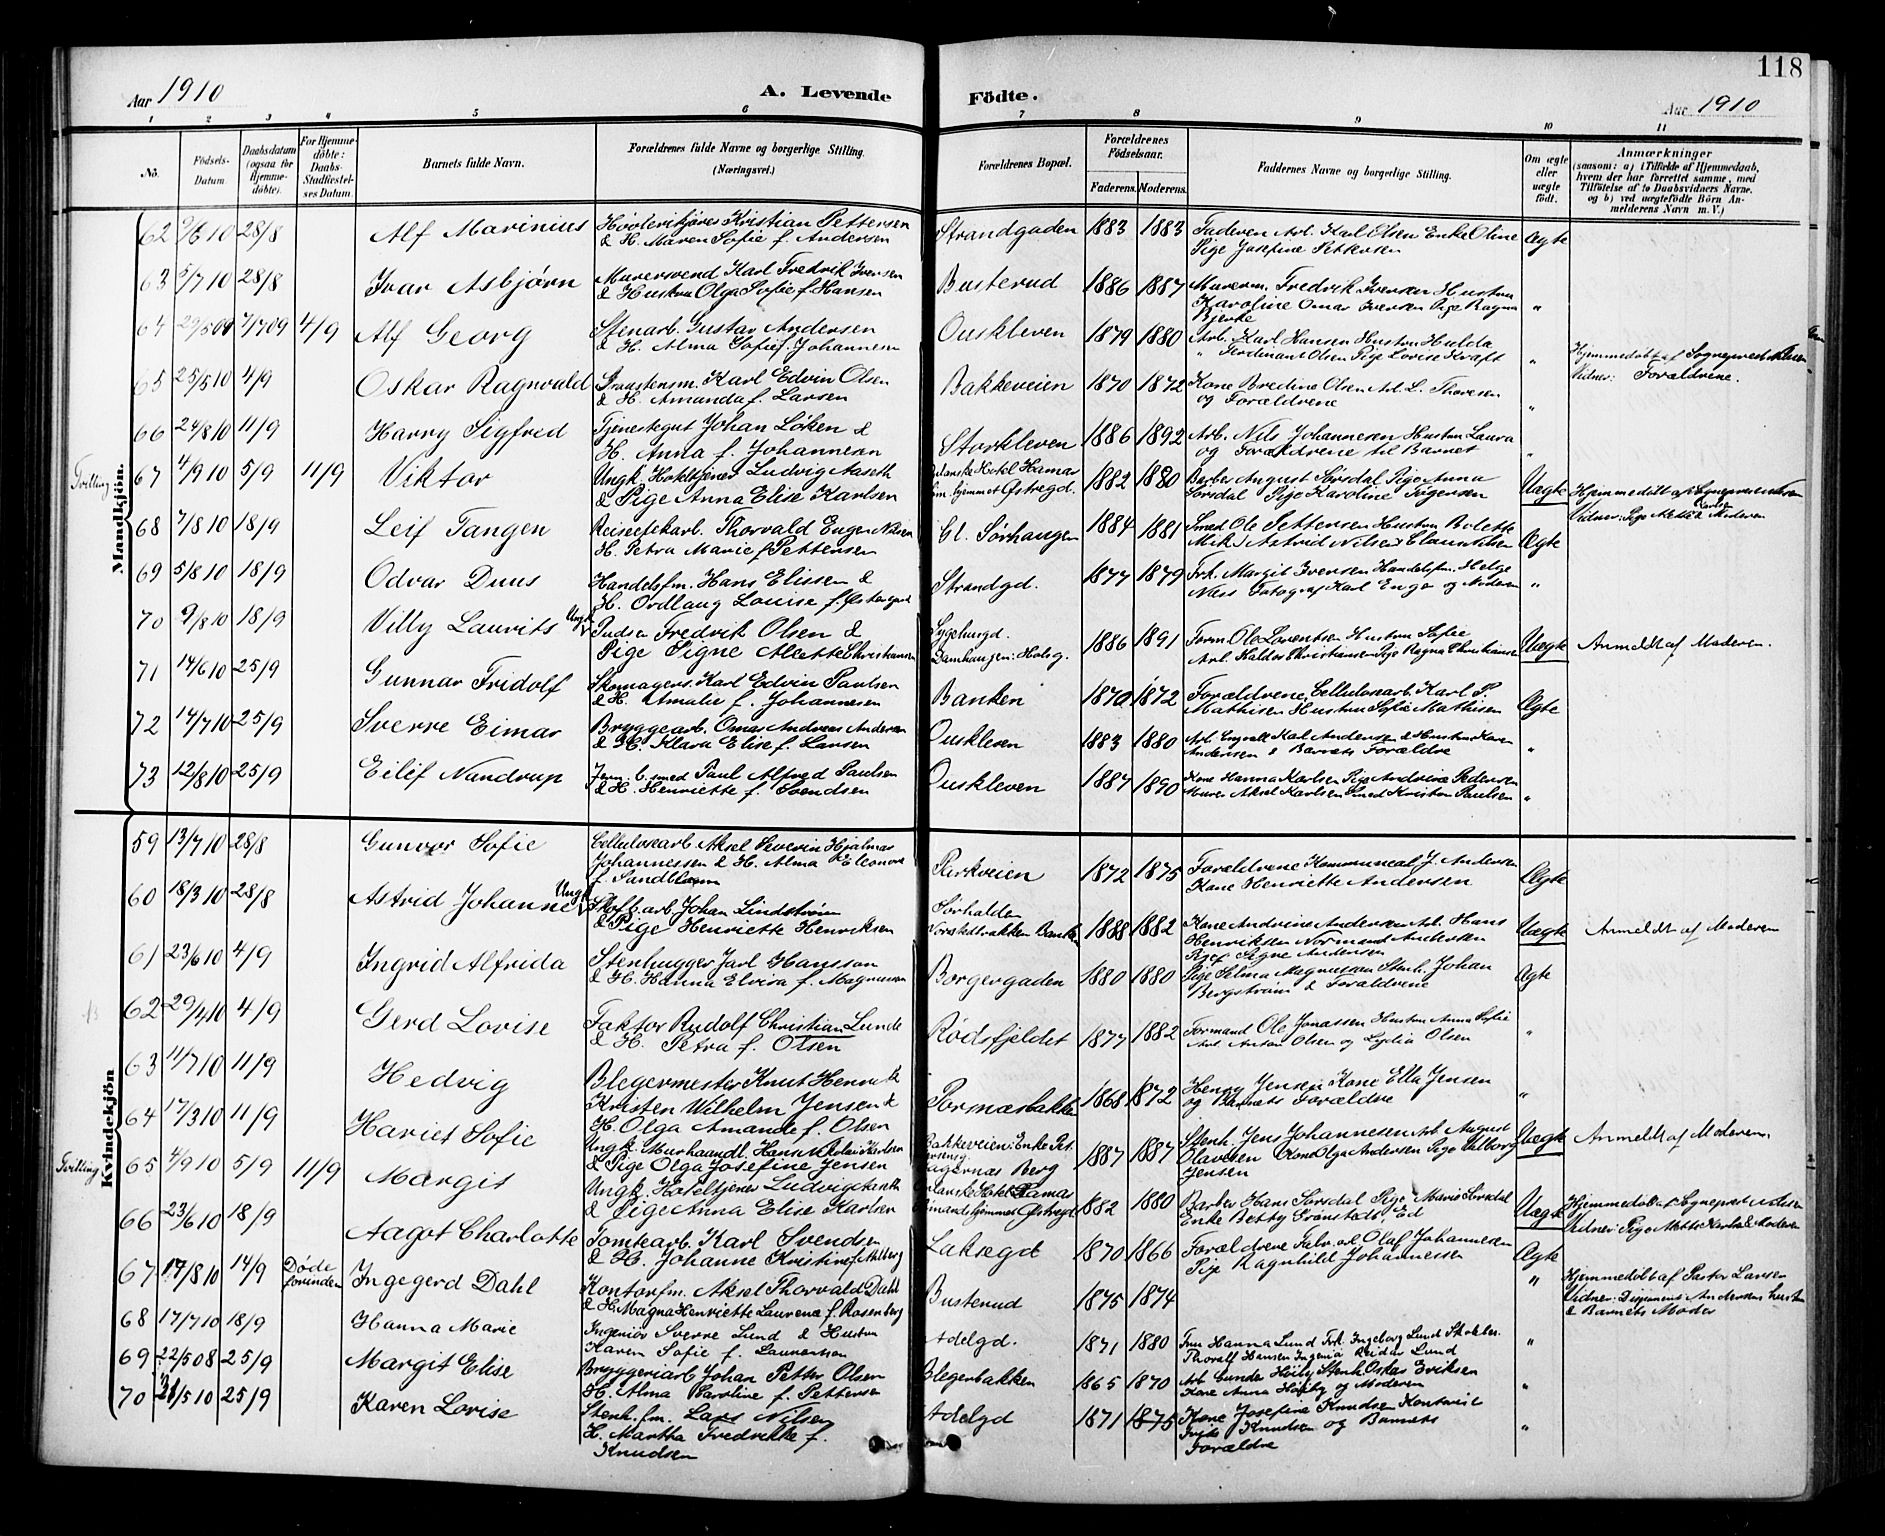 118
Aar 1910
A. Levende Födte.
Aar 1910
1 2 3 4 5 6 7 8 9 10 11
No.
Födsels-Datum.
Daabsdatum (ogsaa for Hjemme-döbte).
For Hjemme-döbte: Daabs-Stadfæstel-ses Datum.
Barnets fulde Navn.
Forældrenes fulde Navne og borgerlige Stilling.
(Næringsvei.)
Forældrenes Bopæl.
Forældrenes Födselsaar.
Faderens. Moderens.
Faddernes Navne og borgerlige Stilling.
Om ægte eller uægte födt.
Anmærkninger
(saasom: a) i Tilfælde af Hjemmedaab,
hvem der har forrettet samme, med
Tilföielse af to Daabsvidners Navne.
og b) ved uægtefödte Börn An-
melderens Navn m. V.)
Mandkjön.
62 9/6 10 28/8 Alf Marinius Høvlerikjører Kristian Pettersen
& H. Maren Sofie f. Andersen Strandgaden 1883 1883 Faderen Arb. Karl Olsen Enke Oline
Pige Josefine Pettersen Ægte
63 5/7 10 28/8 Ivar Asbjørn Murersvend Karl Fredrik Iversen
& Hustru Olga Sofie f. Hansen Busterud 1886 1887 Murerm. Fredrik Iversen Hustru
Karoline Omar Iversen Pige Ragna
Bjerke "
64 29/5 09 7/7 09 4/9 Alf Georg Stenarb. Gustav Andersen
& H. Alma Sofie f. Johannesen Ouskleven 1879 1880 Arb. Karl Hansen Hustru Hulda
" Ferdinant Olsen Pige Lovise Kraft " Hjemmedøbt af Sognepræst Nilssen
Vidner: Forældrene.
65 25/5 10 4/9 Oskar Ragnvald Karl Edvin Olsen
& H. Amanda f. Larsen Bakkeveien 1870 1872 Kone Bredine Olsen Arb. L. Thoresen
og Forældrene "
66 24/8 10 11/9 Harry Sigfred Tjenestegut Johan Løken &
H. Anna f. Johannesen Storkleven 1886 1892 Arb. Nils Johannesen Hustru Laura
og Forældrene til Barnet "
Tvilling 67 4/9 10 5/9 11/9 Viktor Ungk. Hoteltjener Ludvig Aaseth
& Pige Anna Elise Karlsen Hotel Hamar
hjemmet Østregd. 1882 1880 Barber August Sørsdal Pige Anna
Sørsdal Pige Karoline Uægte Hjemmedøbt af Sognepræst Nilssen
Vidner: Pige Mette Karlsen & Moderen
68 7/8 10 18/9 Leif Tangen Thorvald Eugen Nilsen
H. Petra Marie f. Pettersen Gl. Sørhaugen 1884 1881 Smed Ole Pettersen Hustru Bolette
Astrid Nilsen Claus Nilsen Ægte
69 5/8 10 18/9 Odvar Duus Handelsfm. Hans Elissen &
H. Ordlaug Louise f. Østergaard Strandgd. 1877 1879 Frk. Margit Iversen Handelsfm. Helge
Næss Fotograf Karl Enge og Moderen "
70 9/8 10 18/9 Villy Laurits Ungk. Pudser Fredrik Olsen &
Pige Signe Alette Christiansen Sygehusgd.
Damhaugen: Holsg. 1886 1891 Form. Ole Lorentsen Hustru Sofie
Arb. Kaldor Christiansen Pige Ragna Christiansen Uægte Anmeldt af Moderen.
71 14/6 10 25/9 Gunnar Fridolf Skomagers. Karl Edvin Paulsen
& H. Amalie f. Johannesen Banken 1870 1872 Forældrene, Cellulosearb. Karl P.
Mathisen Hustru Sofie Mathisen Ægte
72 14/7 10 25/9 Sverre Eimar Bryggearb. Omar Andreas Andersen
& H. Klara Elise f. Larsen Ouskleven 1883 1880 Arb. Karl Andersen & Hustru Karen
Andersen & Barnets Forældre "
73 12/8 10 25/9 Eilef Nandrup Jern. b. smed Paul Alfred Paulsen
& H. Henriette f. Svendsen Ouskleven 1887 1890 Kone Hanna Karlsen Pige Andrine Pedersen
Murer Aksel Karlsen Smed Kristian Paulsen "
Kvindekjön
59 13/7 10 28/8 Gunvor Sofie Cellulosearb Aksel Severin Hjalmar
Johannessen & H. Alma Eleonore
f. Sandblom Parkveien 1872 1875 Forældrene Kommuneal J. Andersen
Kone Henriette Andersen Ægte
60 18/3 10 28/8 Astrid Johanne Ungk Skofb. arb. Johan Lindstrøm
& Pige Henriette Henriksen Sørhalden
Norstedbakken Banken 1888 1882 Kone Andrine Andersen Arb. Hans
Henriksen Normand Andersen
Pige Signe Andersen Uægte Anmeldt af Moderen
61 23/6 10 4/9 Ingrid Alfrida Stenhugger Jarl Hansson
& H. Hanna Elvira f. Magnusson Borgergaden 1880 1880 Pige Selma Magnusson Stenh. Johan
Bergstrøm & Forældrene Ægte
62 29/4 10 4/9 Gerd Lovise Faktor Rudolf Christian Lunde
& H. Petra f. Olsen Rødsfjeldet 1877 1882 Formand Ole Jonassen Hustru Anna Sofie
Arb. Anton Olsen og Lydia Olsen "
63 11/7 10 11/9 Hedvig Blegermester Knut Henrik
Kristen Wilhelm Jensen &
H. Olga Amande f. Olsen Pormæsbakken 1868 1872 Henry Jensen Kone Ella Jensen
og Barnets Forældre "
64 17/3 10 11/9 Hariet Sofie Ungk. Murhaandl. Hans Nikolai Karlsen
& Pige Olga Josefine Jensen Bakkeveien: Enke
Berg 1887 1887 Stenh. Jens Johannesen Arb August
Olavesen Kone Olga Andersen Pige Valborg
Jensen Uægte Anmeldt af Moderen
Tvilling 65 4/9 10 5/9 11/9 Margit Ungk. Hoteltjener Ludvig Aaseth
& Pige Anna Elise Karlsen Hotel Hamar
Østregd 1882 1880 Barber Hans Sørsdal Pige Marie Sørsdal
Enke Betty Grønsteds, Ed Uægte Hjemmedøbt af Sognepræst Nilssen
Vidner: Pige Mette Karlsen & Moderen
66 23/6 10 18/9 Aagot Charlotte Tomtearb. Karl Svendsen
& H. Johanne Kristine f. Aalberg Laksegd 1870 1866 Forældrene Fabr. arb Olaf Johannesen
Pige Ragnhild Johannessen Ægte
67 17/8 10 14/9 Døde forinden Ingegerd Dahl Kontorfm. Aksel Thorvald Dahl
& H. Magna Henriette Laurence f. Rosenberg Busterud 1875 1874 " Hjemmedøbt af Pastor Larsen
Vidner: Andersen hustru
& Barnets Moder
68 17/7 10 18/9 Hanna Marie Ingeniør Sverre Lund & Hustru
Karen Sofie f. Laurentsen Adelgd. 1871 1880 Fru Hanna Lund Frk. Ingeborg Lund
Thoralf Hansen Ingeniø Reidar Lund "
69 22/5 08 25/9 Margit Elise Bryggeriarb Johan Petter Olsen
H. Alma Karoline f. Pettersen Blegerbakken 1865 1870 Arb Gunder Høiby Stenh. Oskar Eriksen
Kone Anna Høiby og Moderen "
70 21/5 10 25/9 Karen Lovise Stenh. fm. Lars Nilsen
H. Martha Fredrikke f.
Knudsen Adelgd 1871 1875 Kone Josefine Knudsen Kontorist
Knudsen og Barnets
Forældre "